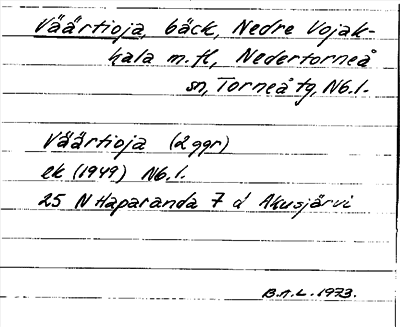 Väärtioja, bäck, Nedre Vojak-
kala m.fl, Nedertorneå
sn, Torneå tg, Nb.l.
Väärtioja (2 ggr)
ek (1949) Nb.l.
25 N Haparanda 7 d Akusjärvi
B.n.L. 1973.